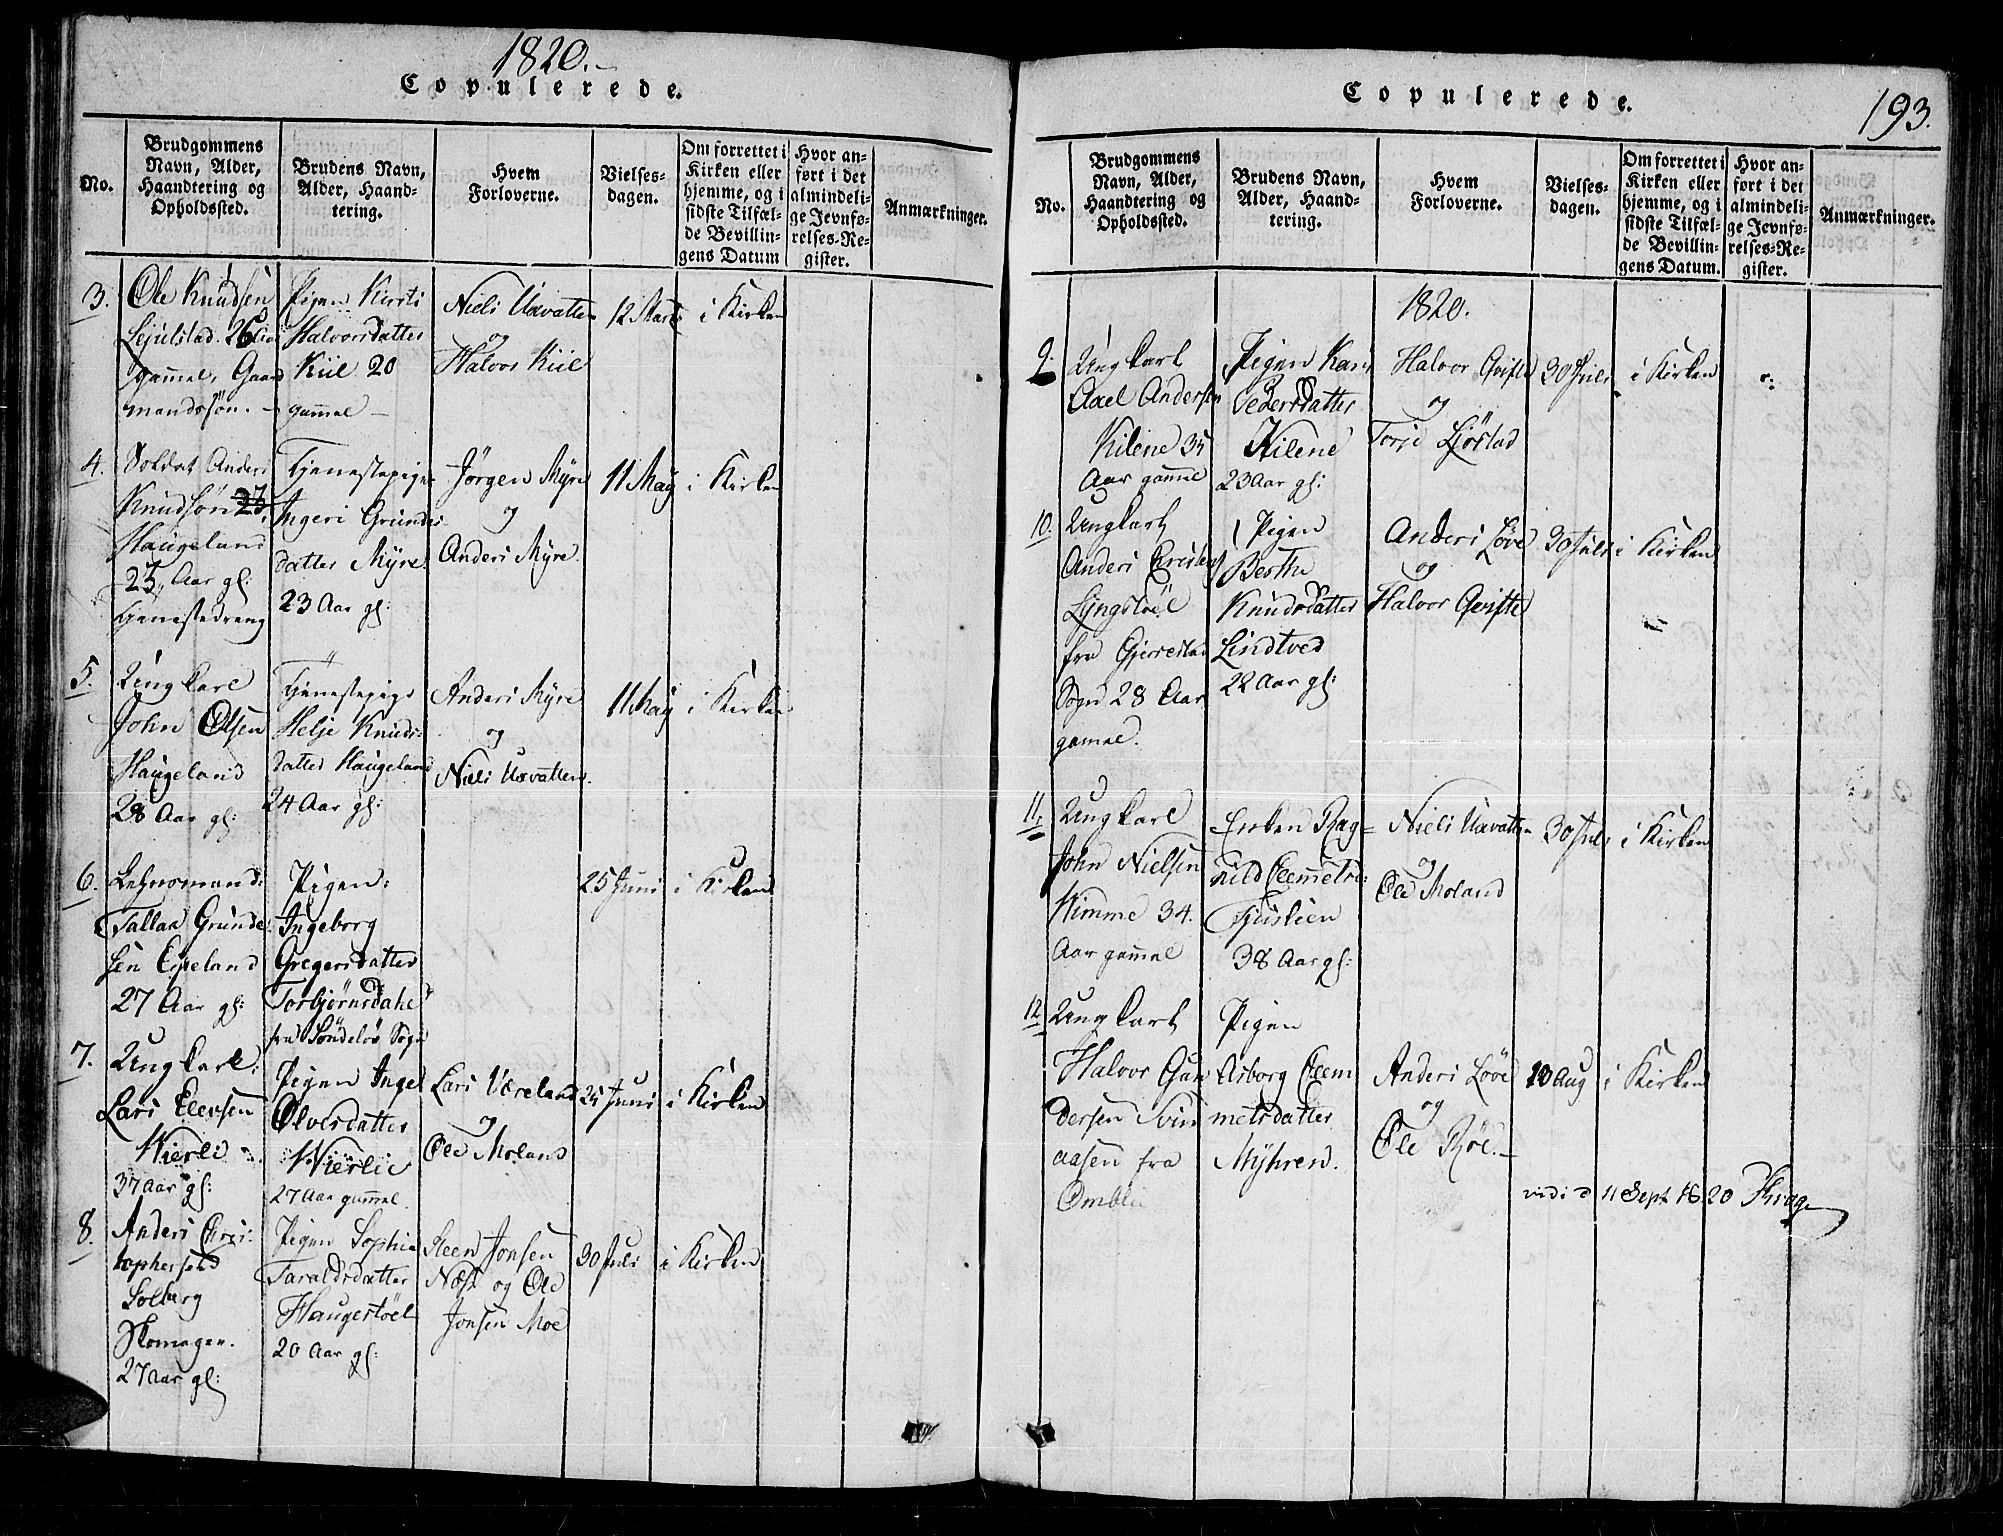 1820.
Copulerede.
No.
Brudgommens
Navn, Alder,
Haandtering og
Opholdssted.
Brudens Navn,
Alder, Haand-
tering.
Hvem
Forloverne.
Vielses-
dagen.
Om forrettet i
Kirken eller
hjemme, og i
sidste Tilfæl-
de Bevillin-
gens Datum
Hvor an-
ført i det
almindeli-
ge Jevnfø-
relses-Re-
gister.
Anmærkninger.
3.
Ole Knudsen
26
gammel, Gaard
mandssøn.
Pigen Kirsti
Halvorsdatter
Kiil 20
gammel
Niels Uxvatten
og
Halvor Kiil
12 Marts
i Kirken
4.
Soldat Anders
Knudsøn
Haugeland
Aar gl:
Tjenestedreng
Tjenestepige
Ingeri Grunds
datter Myre
23 Aar gl:
Jørgen Myre
og
Anders Myre.
11 May
i Kirken
5.
Ungkarl
John Olsen
Haugeland
28 Aar gl:
Tjenestepige
Helje Knuds-
datter Haugeland
24 Aar gl:
Anders Myre
og
Niels Uxvatten.
11 May
i Kirken
6.
Lehnsmand:
Tallak Grunde
sen Espeland
27 Aar gl:
Pigen:
Ingeborg
Gregersdatter
Torbjørnsdahl
fra Søndeløv Sogn
25 Juni
i Kirken
7.
Ungkarl:
Lars Elevsen
Wierli
37 Aar gl:
Pigen Inger
Olversdatter
Wierlie
27 Aar gammel.
Lars Væreland
og
Ole Moland
25 Juni
i Kirken
8.
Anders Chris-
tophersen
Solberg
Skomager.
27 Aar gl:
Pigen Sophie
Taraldsdatter
Haugestøel
20 Aar gl:
Steen Jonsen
Næss og Ole
Jonsen Moe
30 Juli
i Kirken
Copulerede.
193.
No.
Brudgommens
Navn, Alder,
Haandtering og
Opholdssted.
Brudens Navn,
Alder, Haand-
tering.
Hvem
Forloverne.
Vielses-
dagen.
Om forrettet i
Kirken eller
hjemme, og i
sidste Tilfæl-
de Bevillin-
gens Datum.
Hvor an-
ført i det
almindeli-
ge Jevnfø-
relses-Re-
gister.
Anmærkninger.
1820.
9.
Ungkarl
Axel Andersen
Kilene 35
Aar gammel
Pigen Kari
Pedersdatter
Kilene
23 Aar gl:
Halvor Qvifte
og
Torje
30 Juli
i Kirken
10.
Ungkarl
Anders
Lyngstøel
fra Gjerrestad
Sogn 28 Aar
gamal.
Pigen
Berthe
Knudsdatter
Lindtved
22 Aar gl:
Anders Løve
og
Halvor Qvifte
30 Juli
i Kirken
11.
Ungkarl
John Nielsen
Wimme 34.
Aar gammel
Enken Rag-
nild Clemmets:
38 Aar gl:
Niels Uxvatten
og
Ole Moland
30 Juli
i Kirken
12
Ungkarl
Halvor Gun
dersen Svin
aasen fra
Omblie
Pigen
Asborg Clem
metsdatter
Myhren.
Anders Løve
og
Ole Røe.
Aug
i Kirken
vidi d 11 Sept 1820